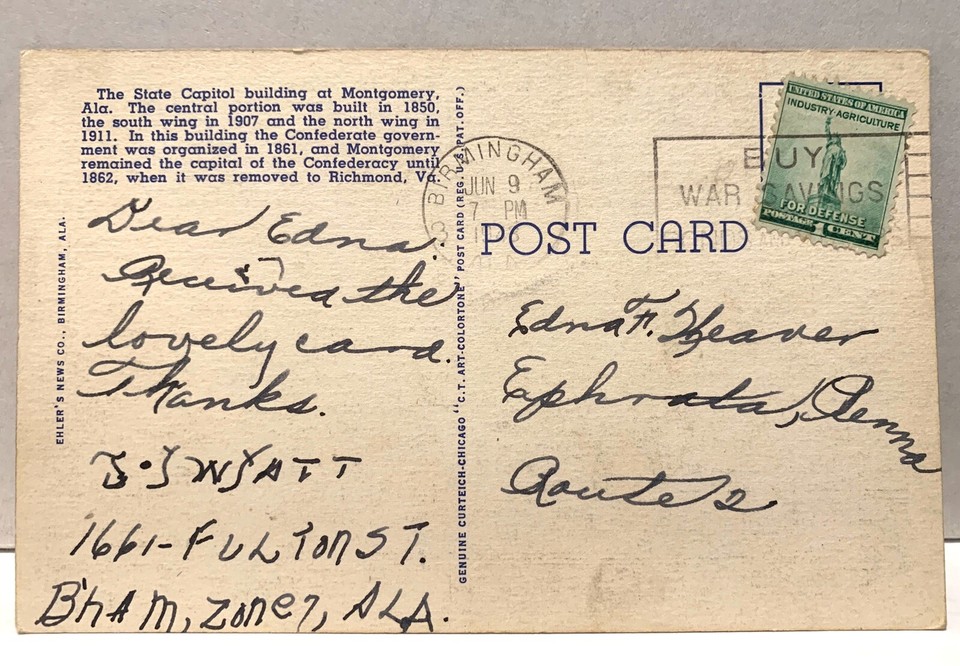 The State Capitol building at Montgomery,
Ala. The central portion was built in 1850,
the south wing in 1907 and the north wing in
1911. In this building the Confederate govern-
ment was organized in 1861, and Montgomery
remained the capital of the Confederacy until
1862, when it was removed to Richmond, Va.
Dear Edna.
Received the
lovely card.
Thanks.
WYATT
1661-FULTON ST.
B'HAM, ZONE 7, ALA.
EHLER'S NEWS CO., BIRMINGHAM, ALA.
GENUINE CURTEICH-CHICAGO "C.T. ART-COLORTONE" POST CARD (REG. U.S. PAT. OFF.)
BIRMINGHAM
JUN 9
7 PM
BUY
WAR SAVINGS
UNITED STATES OF AMERICA
INDUSTRY·AGRICULTURE
FOR DEFENSE
POSTAGE 1 CENT
POST CARD
Edna F. Weaver
Ephrata, Penna
Route 2